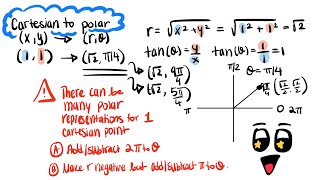 Cartesian to polar
(x,y) → (r,θ)
(1, 1) → (√2, π/4)
(√2, 9π/4)
(√2, 5π/4)
r = √x²+y² = √1²+1² = √2
tan(θ) = y/x tan(θ) = 1/1 = 1
π/2 θ = π/4
π 0 2π
There can be
many polar
representations for 1
cartesian point
A Add/subtract 2π to θ
B Make r negative but add/subtract π to θ.